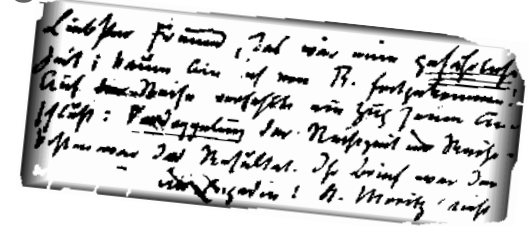 Liebster Freund, das war eine gefährliche
Zeit; kaum bin ich von R. fortgekommen.
Auf der Reise verfehlte ein Zug seinen An-
schluß: Verdoppelung der Reisezeit und Reise-
kosten war das Resultat. Ihr Brief war der
die Engadin! St. Moritz, nicht